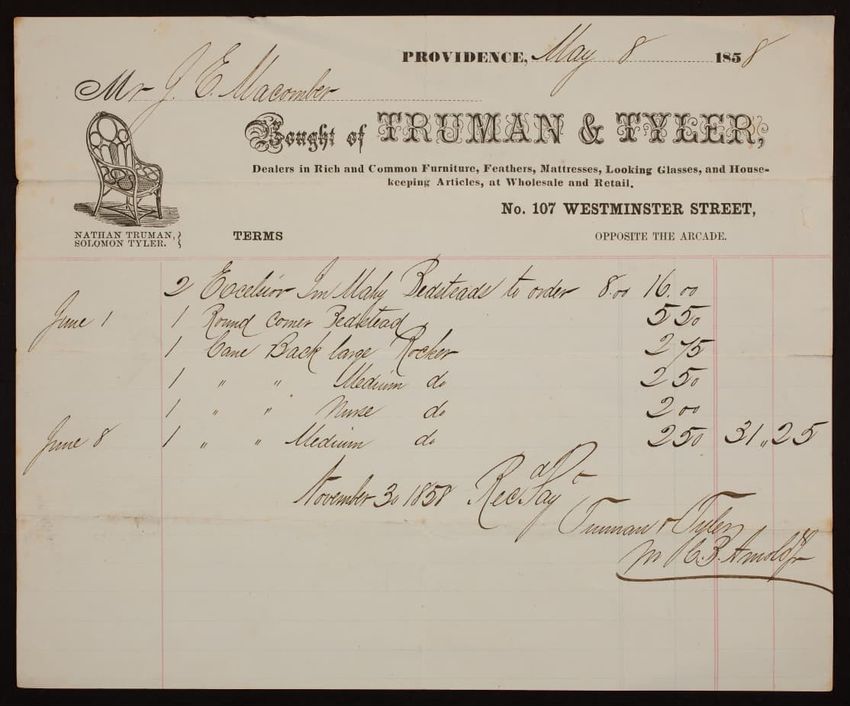 PROVIDENCE, May 8 1858
Mr J. E. Macomber
Bought of TRUMAN & TYLER,
Dealers in Rich and Common Furniture, Feathers, Mattresses, Looking Glasses, and House-
keeping Articles, at Wholesale and Retail.
No. 107 WESTMINSTER STREET,
NATHAN TRUMAN,
SOLOMON TYLER.
TERMS
OPPOSITE THE ARCADE.
2 Excelsior Im Mahy Bedsteads to order 8.00 16.00
June 1 1 Round Corner Bedstead 5 50
1 Cane Back large Rocker 2 75
1 " " Medium do 2 50
1 " " Nurse do 2 00
June 8 1 " " Medium do 2 50 31,25
November 30 1858 Recd Pay
Truman & Tyler
C. B. Arnold Jr